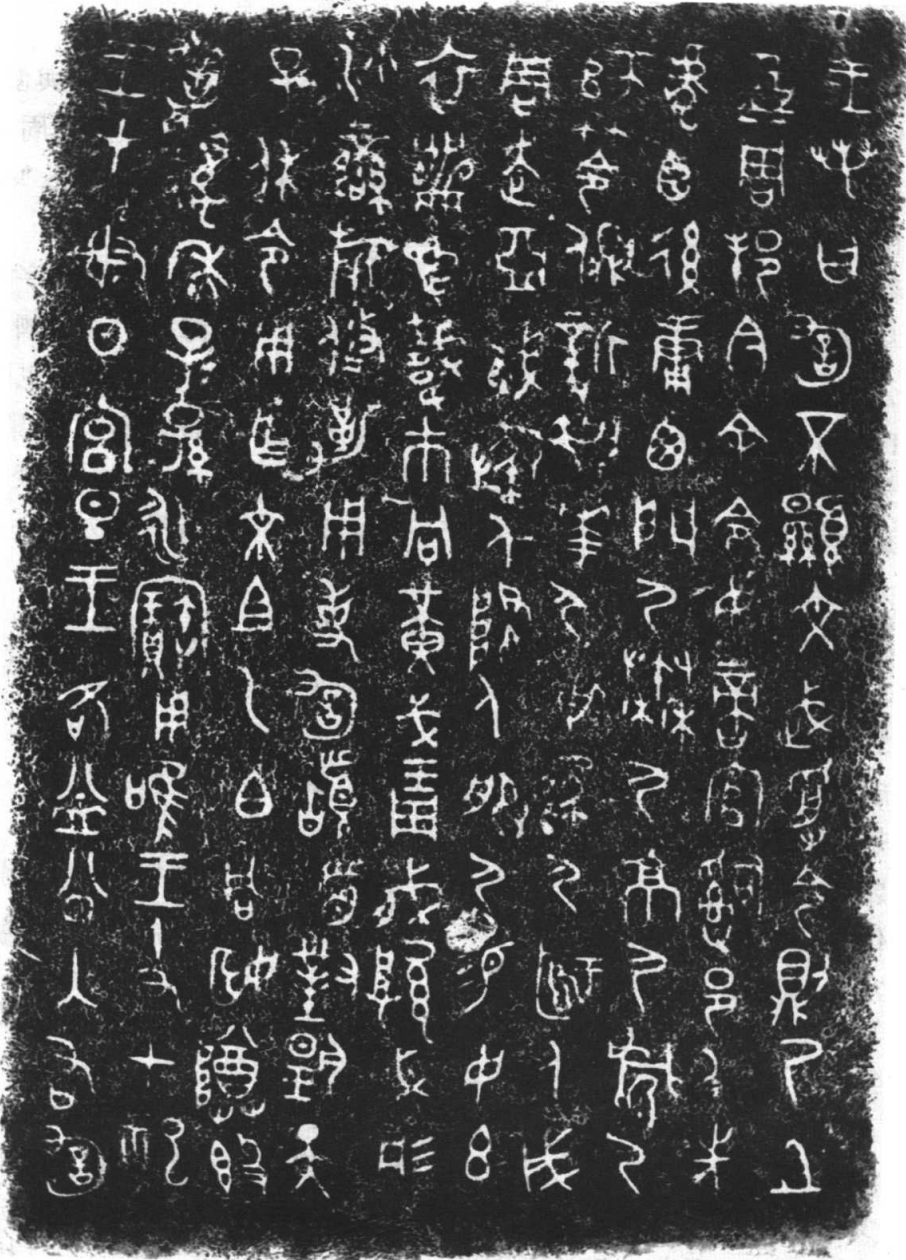 王若曰訇不顯文武受令則乃且
奠周邦今余令女啻官𤔲邑人先
虎臣後庸西門尸秦尸京尸尸
師笭側新華尸尸人成
周走亞戍秦人降人服尸易女玄
衣黹屯巿冋黃戈琱必彤
沙䜌旂攸勒用事訇首對揚天
子休令用乍文且乙白同姬尊
萬年子子孫永寶用唯王十又七祀
王才射日宮旦王各益公入右訇